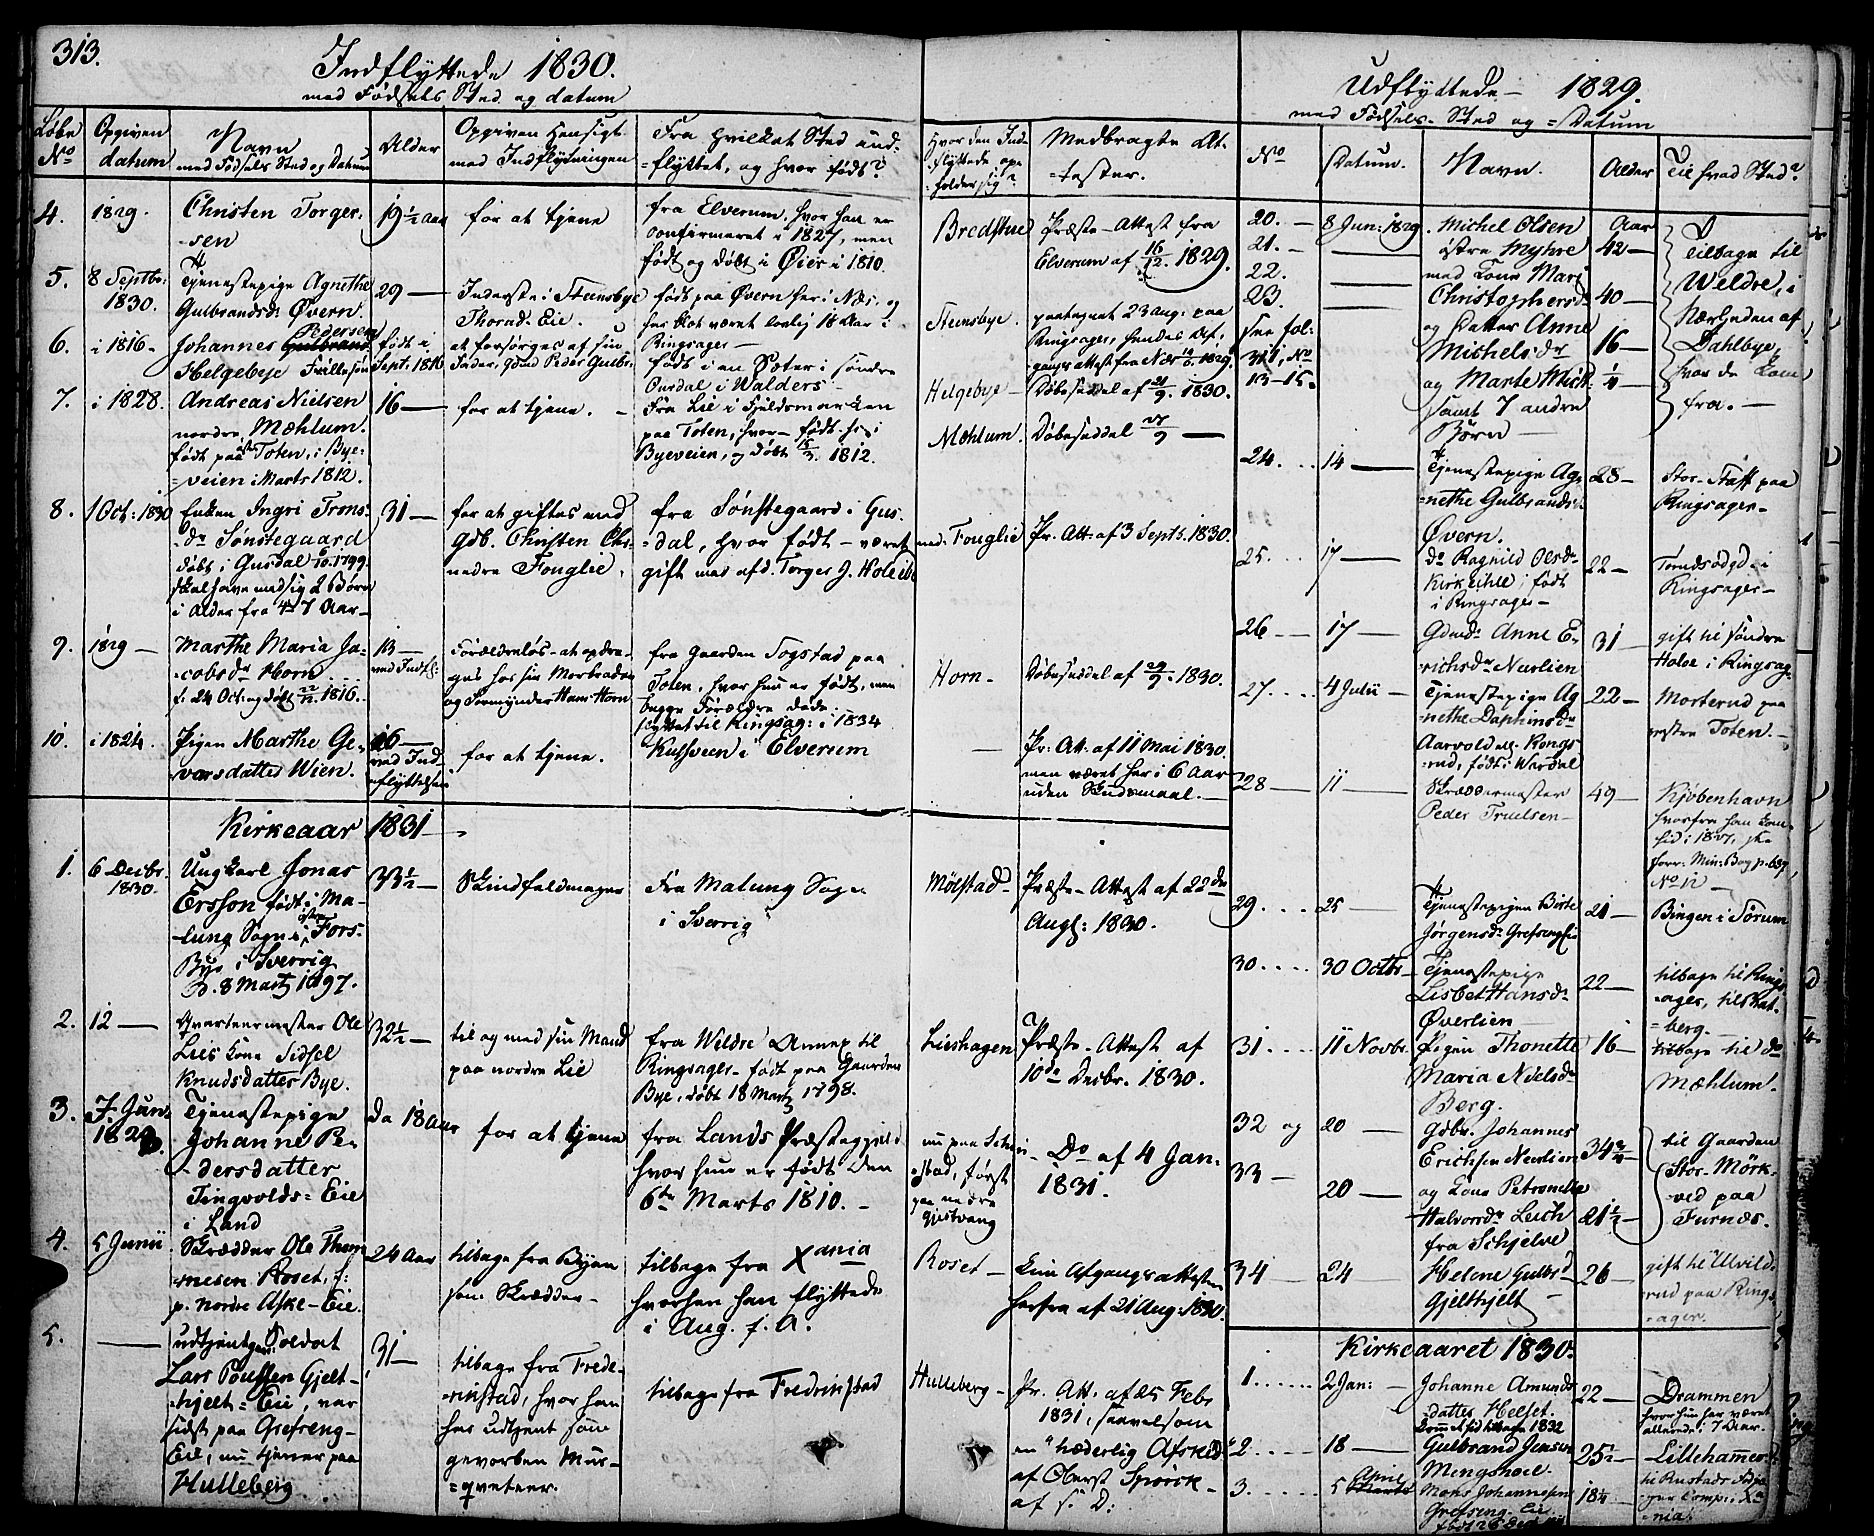 313.
Indflyttede 1830.
med Fødsels Sted og datum
Løbe No
Opgiven datum
Navn
med Fødsels Sted og Datum
Alder
Opgiven Hensigt
med Indflytningen
Fra hvilket Sted ind-
=flyttet, og hvor født?
Hvor den Ind-
flyttede op-
holder sig?
Medbragte At-
=tester.
4.
1829.
Christen Torger-
sen
19½ Aar
for at tjene
fra Elverum, hvor han er
confirmeret i 1827, men
født og døbt i Øier i 1810.
Bredstue
Præste-Attest fra
Elverum af 16/12. 1829.
5.
8 Septbr.
1830.
Tjenestepige Agnethe
Gulbrandsd. Øvern.
29 —
Inderste i Steensbye
Thorud-Eie.
født paa Øvern her i Næs, og
har blot været borte 18 Aar i
Ringsager —
Steensbye.
paategnet 23 Aug. paa
Ringsager, hendes Af-
gangsattest fra Næs 1829.
6.
i 1816 -
Johannes Pedersen
Helgebye
født i
Sept. 1816
at forsørges af sin
Fader, Gdmd Peder Gulbr.
født i en Sæter i søndre
Ourdal i Walders -
Helgebye -
Døbeseddel af 21/9. 1830.
7.
i 1828.
Andreas Nielsen
nordre Mæhlum.
født paa Toten, i Bye-
=veien i Marts 1812.
16 —
for at tjene. -
Fra Lie i Fjeldsmarken
paa Toten, hvor født i
Byeveien, og døbt 15/3. 1812.
Mæhlum.
Døbeseddel 27/9 —
8.
1 Oct: 1830
Enken Ingri Trons-
dr Sønstegaard
døbt i Gusdal 1799.
skal have med sig 2 Børn
i Alder fra 4-7 Aar -
31 —
for at giftes med
Gdb. Christen Chr.
nedre Fouglie.
fra Sønstegaard i Gus-
=dal, hvor født - været
gift med afd. Torger J. Holeie
ned. Fouglie
Pr. Att. af 3 Septb. 1830.
9.
1829 —
Marthe Maria Ja-
cobsdr Horn
f. 24 Oct. og døbt 22/12 1816.
13 —
ved Indfl:
Forældreløs - at opdra-
ges hos sin Morbroder
og Formynder Hans Horn
fra Gaarden Sogstad paa
Toten, hvor hun er født, men
begge Forældre døde.
flyttet til Ringsag: i 1834
Horn -
Døbeseddel af 29/9. 1830.
10.
i 1824.
Pigen Marthe Ge-
varsdatter Wien.
16 —
ved Ind-
flyttelsen
for at tjene.
Kulsveen i Elverum
—
Pr. Att. af 11 Mai 1830.
men været her i 6 Aar
uden Skudsmaal. —
Kirkeaar 1831 -
1.
6 Decbr.
1830.
Ungkarl Jonas
Ersson født i Ma-
lung Sogn i Fors-
Bye i Sverrig
D. 8 Martz 1797.
33½ -
Skindfeldmager
Fra Malung Sogn
i Sverig
Mølstad -
Præste-Attest af 22de
Augs: 1830.
2.
12 —
Qvarteermester Ole
Lies Kone Sidsel
Knudsdatter Bye.
32½ -
til og med sin Mand
paa nordre Lie
fra Weldre Annex til
Ringsager - født paa Gaarden
Bye, døbt 18 Martz 1798.
Lieshagen
Præste-Attest af
10de Decbr. 1830.
3.
7. Jun.
Tjenestepige
Johanne Pe-
dersdatter
Tingvolds-Eie
i Land
da 18 Aar
for at tjene
fra Lands Præstegjeld
hvor hun er født den
6te Marts 1810. -
først
paa nedre
Gjestvang
Do af 4 Jan:
1831.
4.
5 Junii
Skrædder Ole Thom-
mesen Roset, f:
p. nordre Aske-Eie
24 Aar
tilbage fra Byen
som Skrædder -
tilbage fra Xania
hvorhen han flyttede
i Aug. f. A.
Roset -
Kun Afgangsattesten
herfra af 21 Aug. 1830.
5.
—
udtjent Soldat
Lars Poulsen Gjelt-
hjelt-Eie, var
sidst paa Grefsreng-
Eie, nu tjener paa
Hulleberg
31 —
tilbage fra Frede-
rikstad, hvor han
har udtjent som
gevorben Mus-
=qveteer.
tilbage fra Fredrikstad
Hulleberg -
Pr. Att. af 25 Feb.
1831, saavelsom
en "hæderlig Afskeed"
af Oberst Spørck -
af s. D:
Udflyttede - 1829.
med Fødsels-Sted og =Datum
No
Datum.
Navn.
Alder
Til hvad Sted?
20. —
21. —
22.
23.
see fol.
311, No
13-15.
8 Jun: 1829.
Michel Olsen
østre Myhre
med Kone Mari
Christophersdr
og Datter Anne
Michelsdr
og Marte Mich:
samt 7 andre
Børn —
Aar
42 —
40 —
16 —
Tilbage til
Weldre, i
Nærheden af
Dahlbye,
hvor de kom
fra. —
24. ..
14 —
Tjenestepige Ag-
=nethe Gulbrandsd.
Øvern.
28 —
Stor-Staff paa
Ringsager -
25. ...
17 —
do Ragnild Olsdr
Kirkeihle, født
i Ringsager -
22 —
i
Ringsager -
26 —
17 —
Gdmd. Anne E-
richsdr Nærlien
31 —
gift til søndre
Holoe i Ringsag:
27. ...
4 Julii —
Tjenestepige Ag-
nethe Daphinsdr
Aarvold ell. Kongs-
rud, født i Wardal
22 —
Morterud paa
vestre Toten. —
28 —
11 —
Skræddermester
Peder Truelsen -
49 —
Kjøbenhavn
hvorfra han kom
hid i 1807,
forr. Min: Bog p. 689,
No 12 —
29. ...
25 —
Tjenestepigen Birte
Jørgensdr Grefsenglie
21 —
Bingen i Sørum
30. ...
30 Octbr -
Tjenestepige
Lisbet Hansdr
Øverlien —
22 —
tilbage til Rings-
ager, til Skat-
=berg. —
31. ...
11 Novbr.
Pigen Thonette
Maria Nielsdr
Berg.
16 —
tilbage til do
Mæhlum.
32 og
33 —
20 —
20 —
Gdbr. Johannes
Erichsen Nærlien
og Kone Petronelle
Halvorsdr Leich
fra Schjelve
34¾
21½ —
til Gaarden
Stor-Mørk-
=ved paa
Furnæs.
34 —
24 —
Helene Gulbrd
Gjelthjelt —
26 —
gift til Ulvild-
rud paa Rings-
=ager.
Kirkeaaret 1830.
1. ....
2 Jan: —
Johanne Amunds-
datter Helset.
Kommet hid tilbage 1832
22 —
Drammen
hvor hun har været
allerede i 7 Aar.
2. ....
18 —
Gulbrand Jensen
Mengshoel.
25½ -
Lillehammer
3. ....
5 April
Mons Johannesen
Grefseng-Eie
18¼ —
til Rustads
comp: i Xa-
=nia.